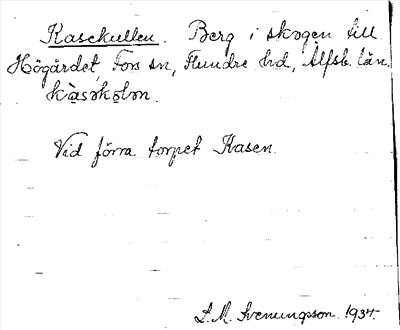 Kasekullen. Berg i skogen till
Högärdet, Fors sn, Flundre hd, Älfsb. län.
Vid förra torpet Kasen.
S. M. Svenungsson. 1937.